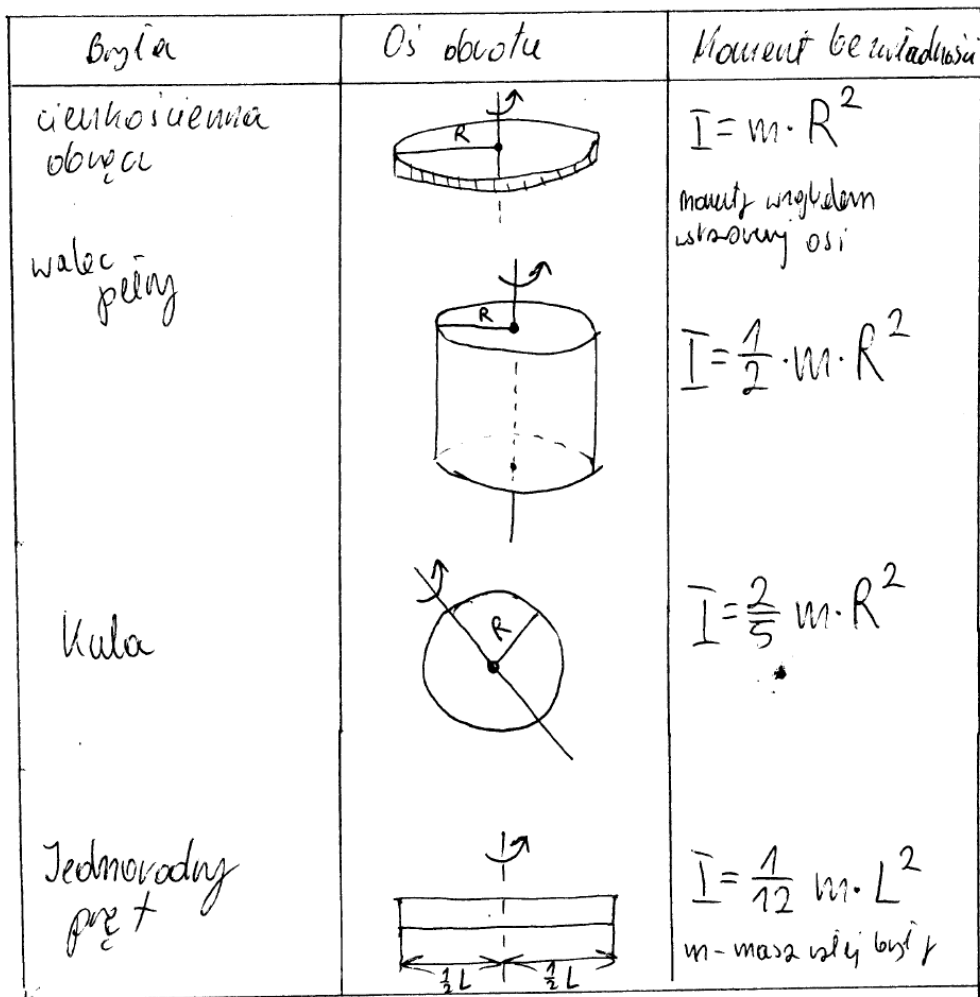 Bryła
Oś obrotu
Moment bezwładności
cienkościenna
obręcz
R
I = m · R²
momenty względem
wskazanej osi
walec
pełny
R
I = 1/2 · m · R²
Kula
R
I = 2/5 m · R²
Jednorodny
pręt
1/2 L
1/2 L
I = 1/12 m · L²
m - masa całej bryły